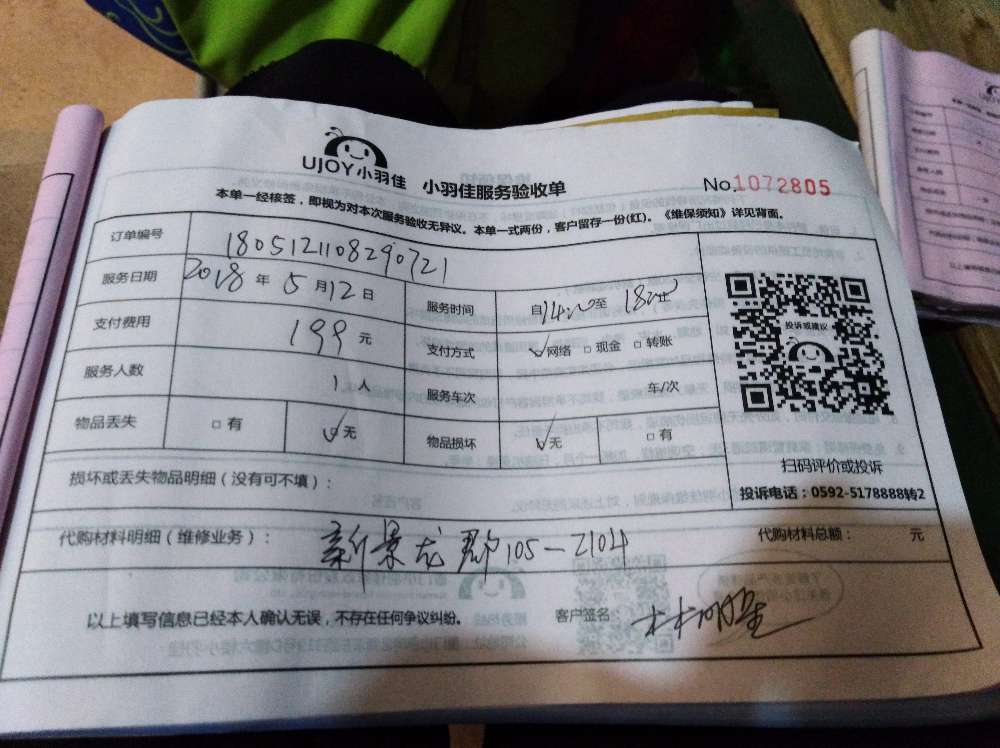 UJOY小羽佳 小羽佳服务验收单 No.1072805
本单一经核签，即视为对本次服务验收无异议。本单一式两份，客户留存一份(红)。《维保须知》详见背面。
订单编号 1805121108290721
服务日期 2018 年 5 月 12 日 服务时间 自 14:00 至 18:00 止
支付费用 199 元 支付方式 ✓网络 □现金 □转账
服务人数 1 人 服务车次 车/次
物品丢失 □有 ✓无 物品损坏 ✓无 □有
投诉或建议
扫码评价或投诉
投诉电话：0592-5178888转2
损坏或丢失物品明细（没有可不填）：
代购材料明细（维修业务）： 新景龙郡105-2104 代购材料总额： 元
以上填写信息已经本人确认无误，不存在任何争议纠纷。 客户签名：